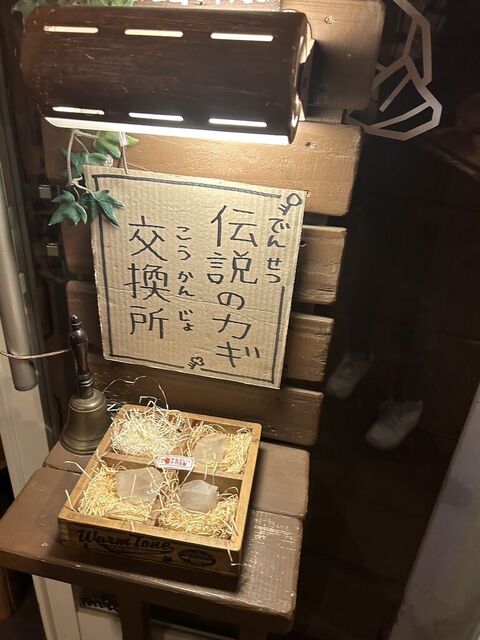 伝説のカギ
でんせつ
交換所
こうかんじょ
Warm Tone